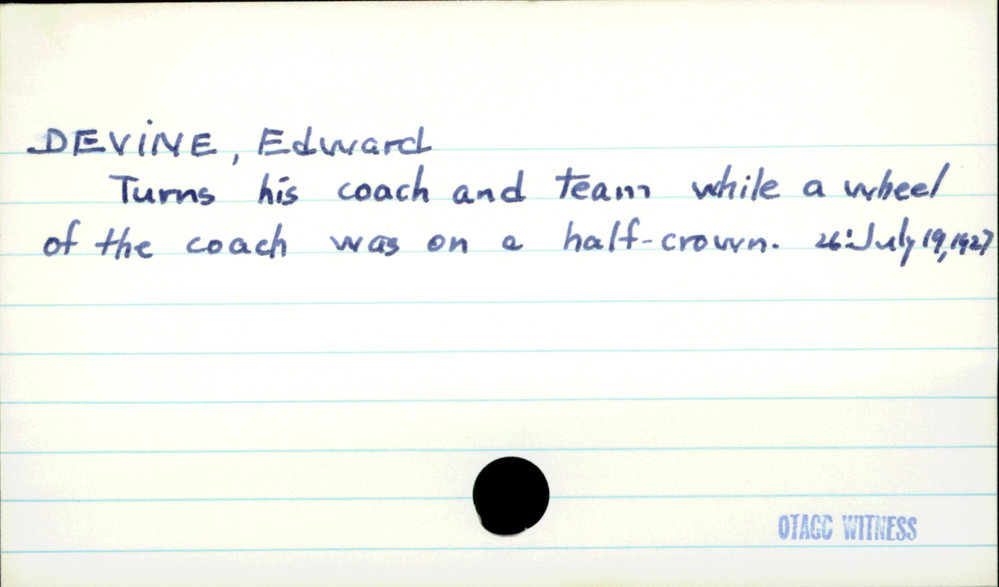 DEVINE, Edward
Turns his coach and team while a wheel
of the coach was on a half-crown. 26:July 19, 1927
OTAGO WITNESS